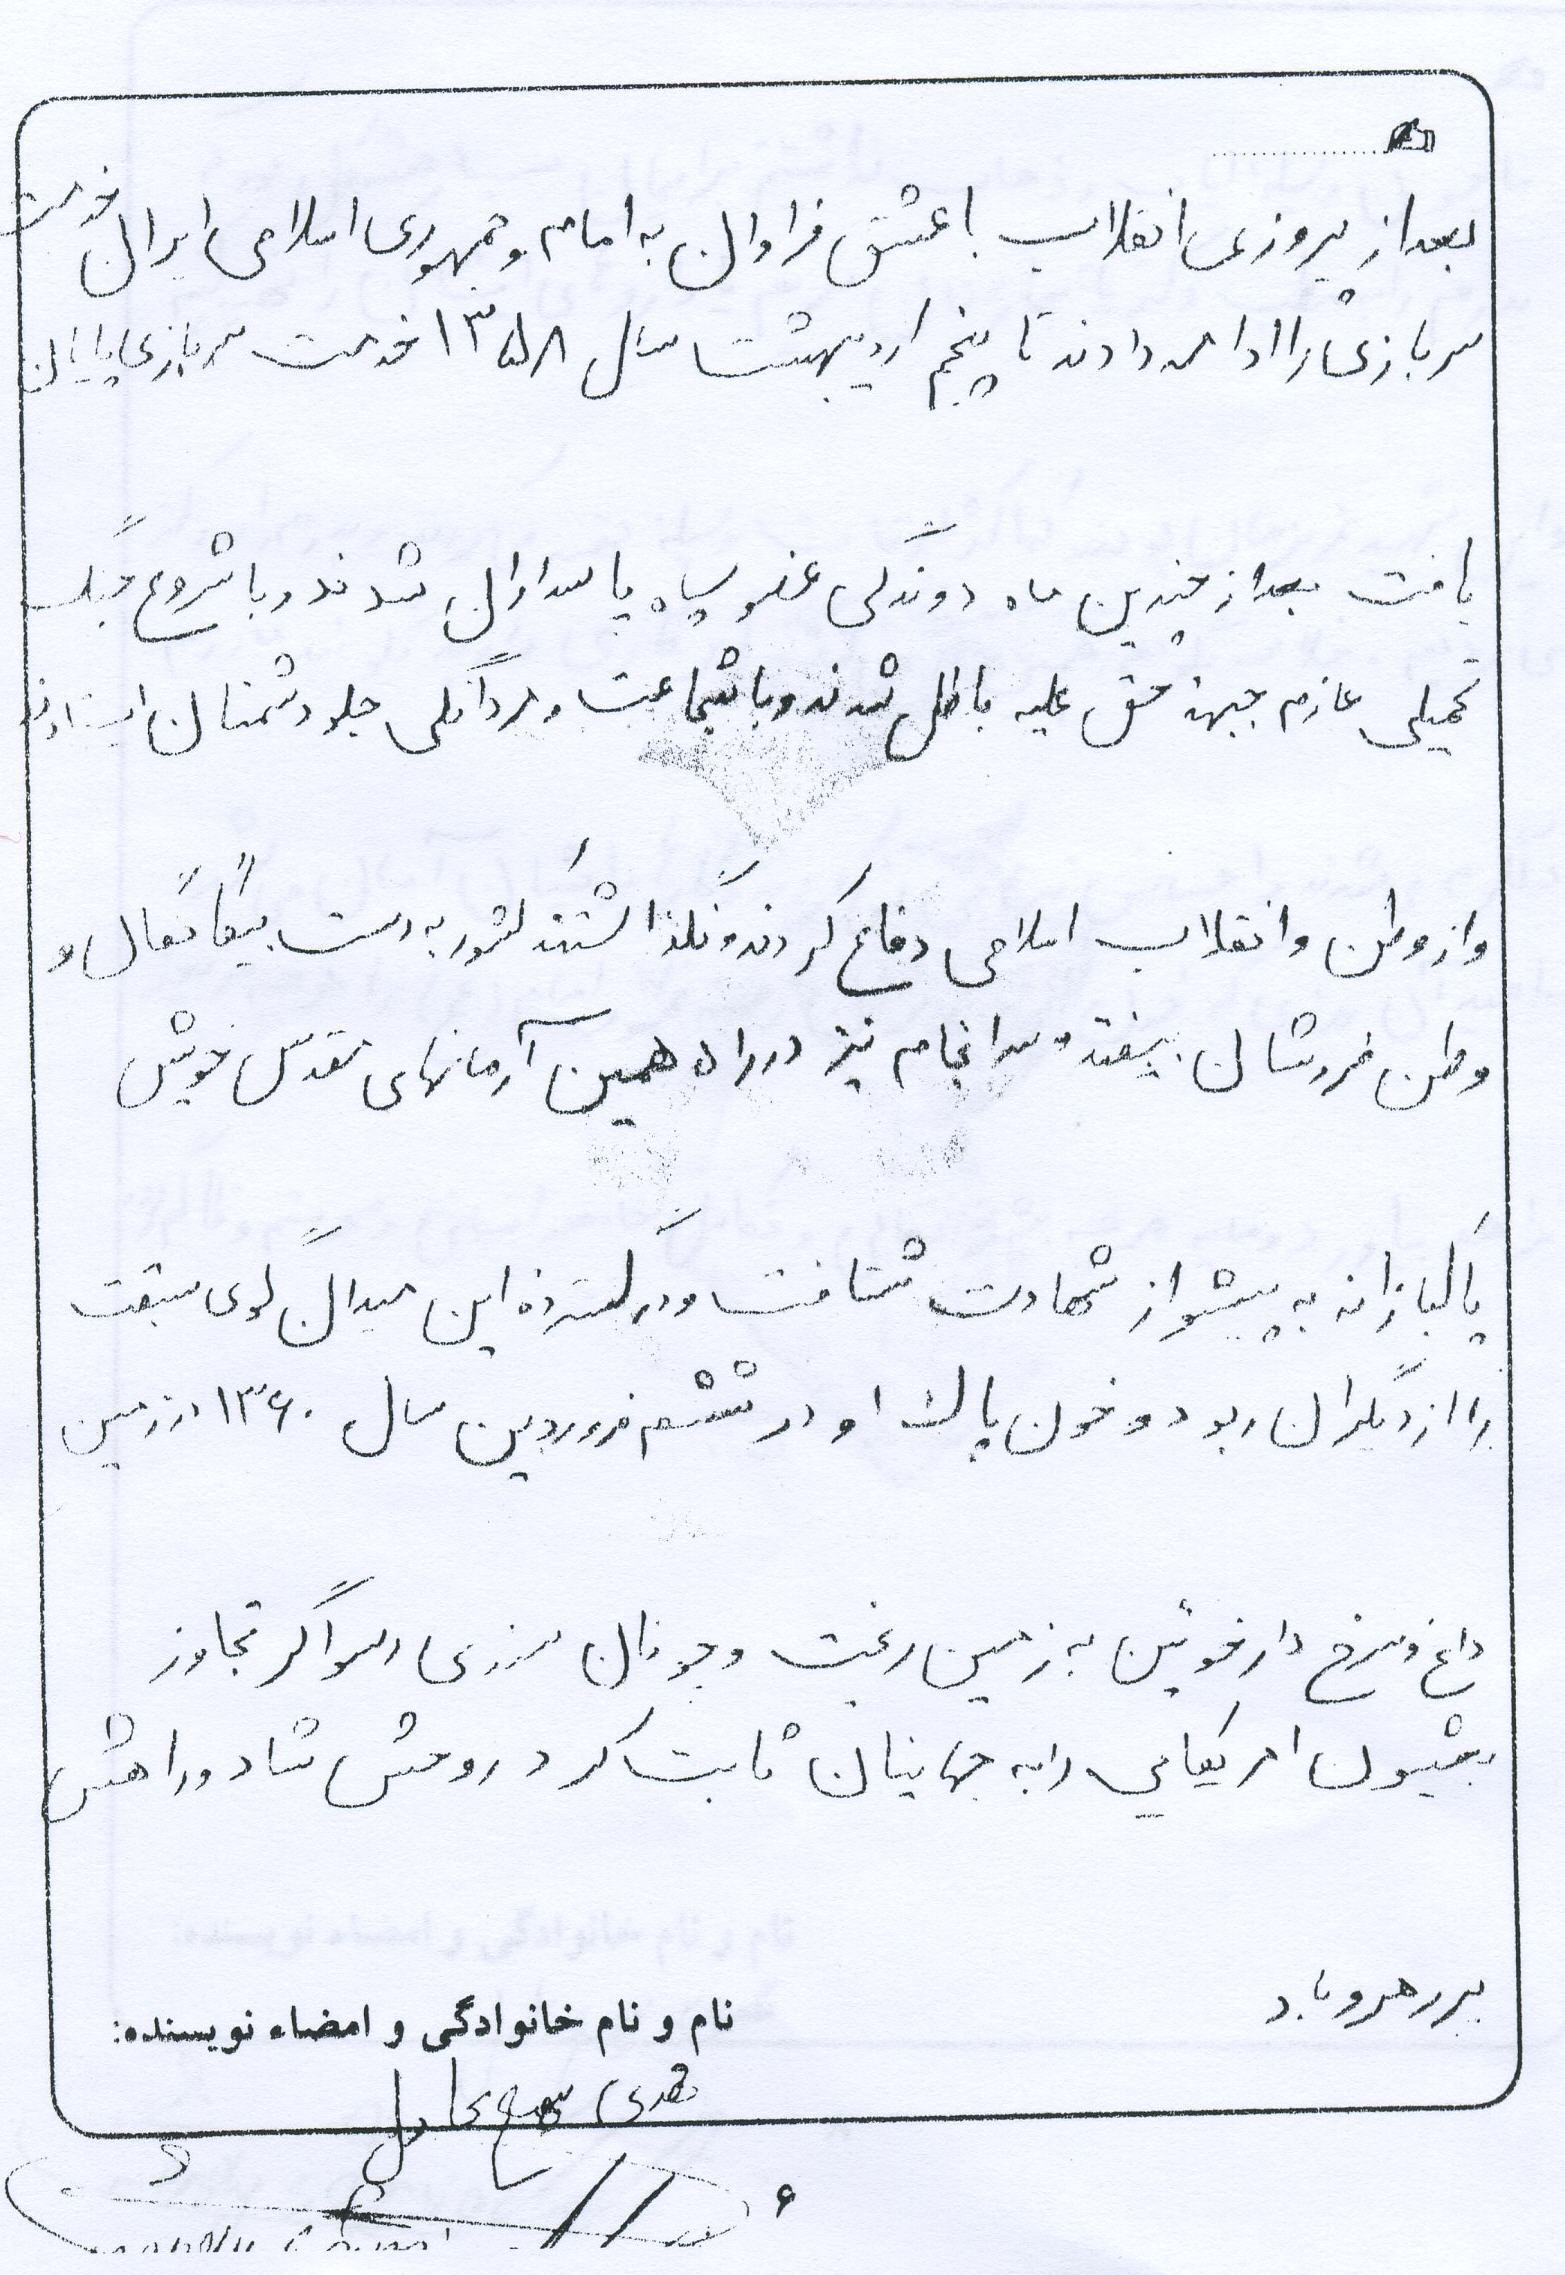 بعد از پیروزی انقلاب با عشق فراوان به امام و جمهوری اسلامی ایران خدمت
سربازی را ادامه دادند تا پنجم اردیبهشت سال ۱۳۵۸ خدمت سربازی پایان
یافت بعد از چندین ماه دوندگی عضو سپاه پاسداران شدند و با شروع جنگ
تحمیلی عازم جبهه حق علیه باطل شدند و با شجاعت و مردانگی جلو دشمنان ایستادند
و از وطن و انقلاب اسلامی دفاع کردند و نگذاشتند کشور به دست بیگانگان و
وطن فروشان بیفتد و سرانجام نیز در راه همین آرمانهای مقدس خویش
پاکبازانه به پیشواز شهادت شتافت و در گستره این میدان گوی سبقت
را از دیگران ربود و خون پاک او در ششم فروردین سال ۱۳۶۰ در زمین
داغ و سرخ دارخوئین به زمین ریخت و چونان سندی رسواگر تجاوز
بعثیون امریکایی را به جهانیان ثابت کرد روحش شاد و راهش
پر رهرو باد
نام و نام خانوادگی و امضاء نویسنده:
۶